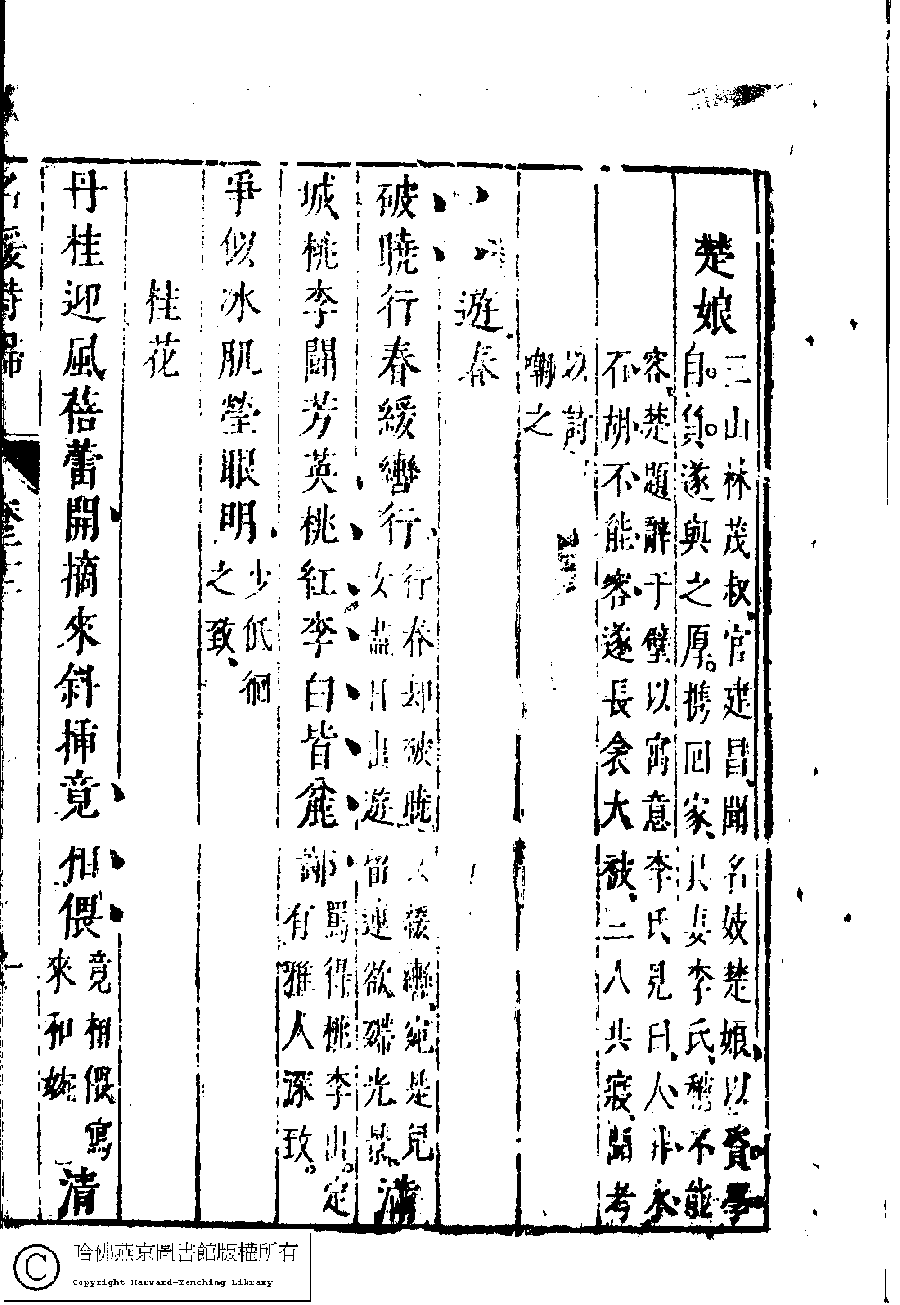 楚娘
三山林茂叔官建昌聞名妓楚娘以資學
自負遂與之厚携回家其妻李氏稍不能
容楚題辭于壁以寓意李氏見曰人非木
石胡不能容遂長衾大被三人共寢聞者
以詩
嘲之
遊春
破曉行春緩轡行
行春却破曉又緩轡宛是兒
女盡日出遊留連欲殢光景
清
城桃李鬪芳英桃紅李白皆麄
罵得桃李出定
有雅人深致
爭似冰肌瑩眼明
少低徊
之致
桂花
丹桂迎風蓓蕾開摘來斜插竟相偎
竟相偎寫
來和婉
清
名媛詩歸
哈佛燕京圖書館版權所有
Copyright Harvard-Yenching Library